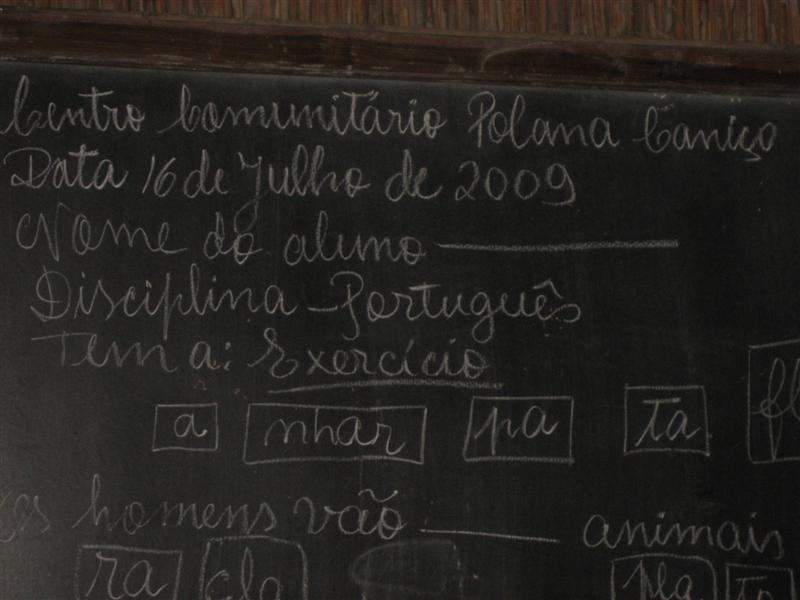 Centro Comunitário Polana Caniço
Data 16 de Julho de 2009
Nome do aluno
Disciplina - Português
Tema: Exercício
a nhar pa ta
homens vão animais
ra cla pla